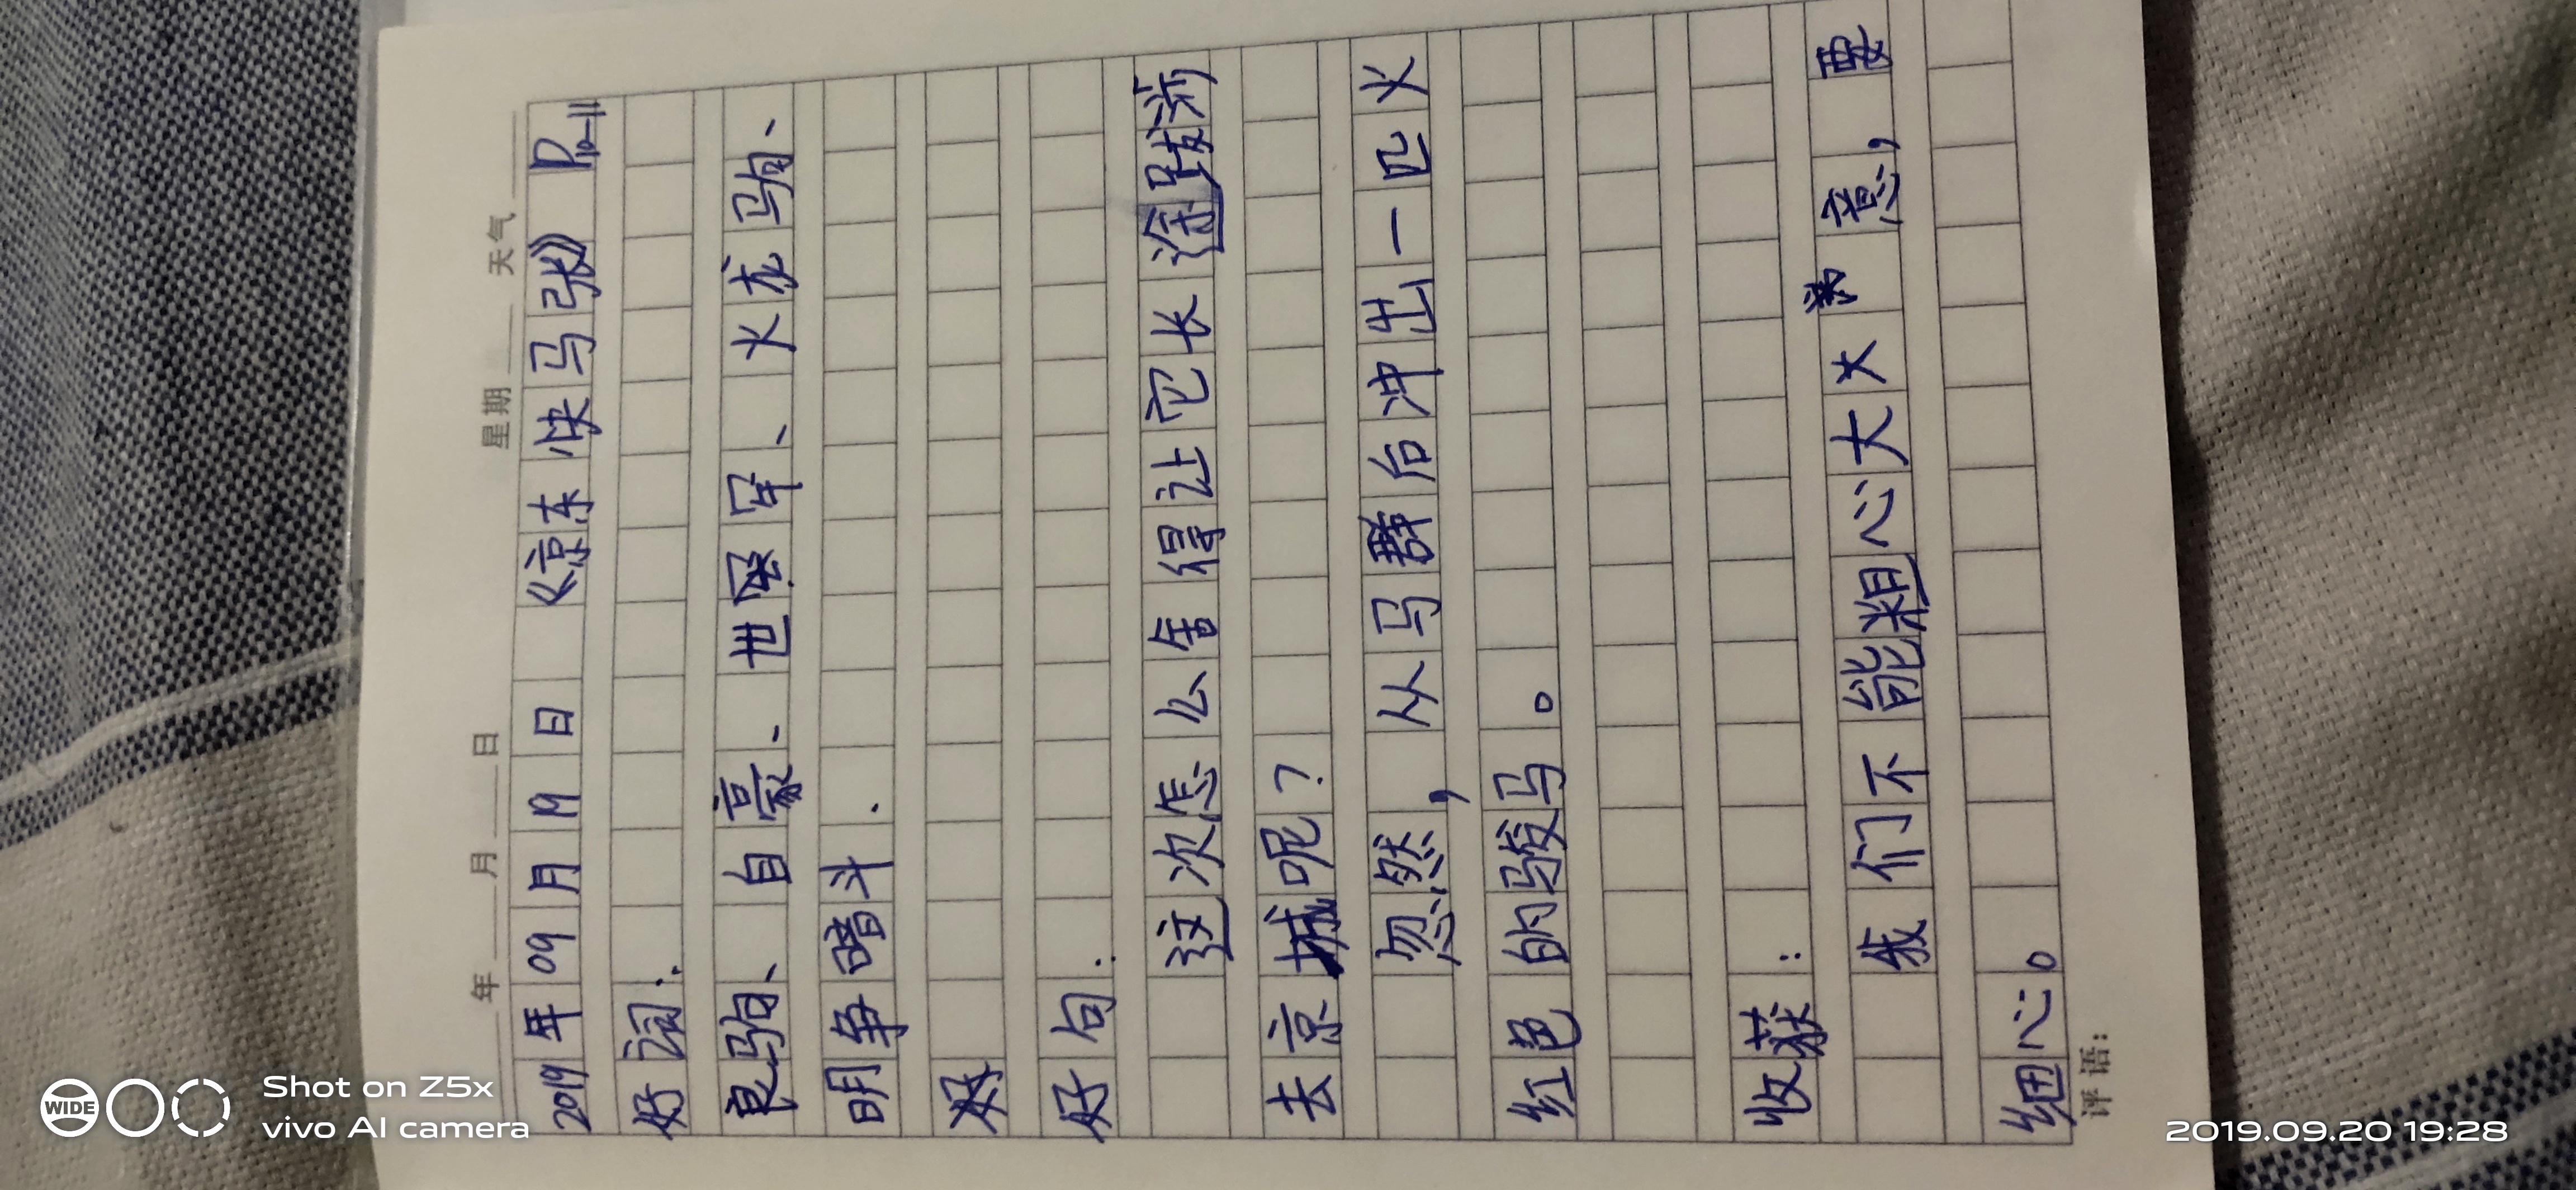 年 月 日 星期 天气
2019年09月19日 《京东快马张》 P10-11
好词:
良驹、自豪、世军、火龙驹、
明争暗斗.
好句:
这次怎么舍得让它长途跋涉
去京城呢?
忽然,从马群台冲出一匹火
红色的骏马。
收获:
我们不能粗心大意,要
细心。
评语:
WIDE
Shot on Z5x
vivo AI camera
2019.09.20 19:28